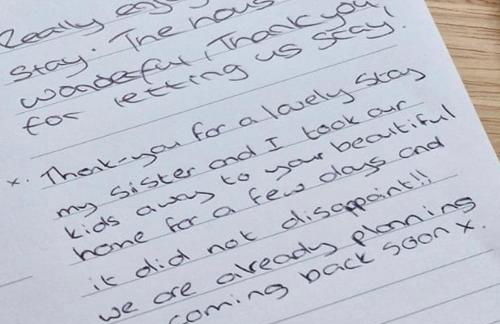 Really enj
stay. The hous
wonderful, Thank you
for letting us stay!
x. Thank-you for a lovely stay
my sister and I took our
kids away to your beautiful
home for a few days and
it did not disappoint!!
we are already planning
coming back soon x.